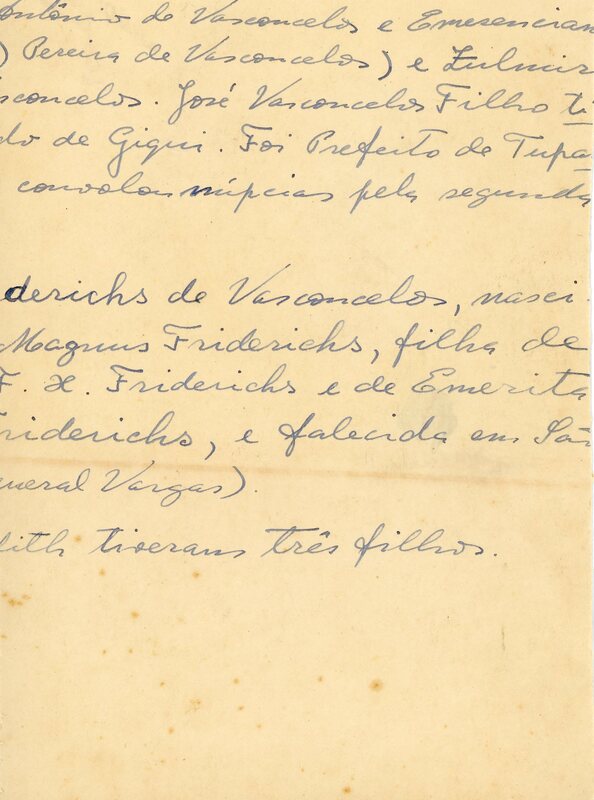 Antônio de Vasconcelos e Emesencian
) Pereira de Vasconcelos) e Zulmir
sconcelos. José Vasconcelos Filho ti
do de Giqui. Foi Prefeito de Tupa-
convolou núpcias pela segunda
derichs de Vasconcelos, nasci-
Magnus Friderichs, filha de
F. X. Friderichs e de Emerita
riderichs, e falecida em São
neral Vargas).
dith tiveram três filhos.